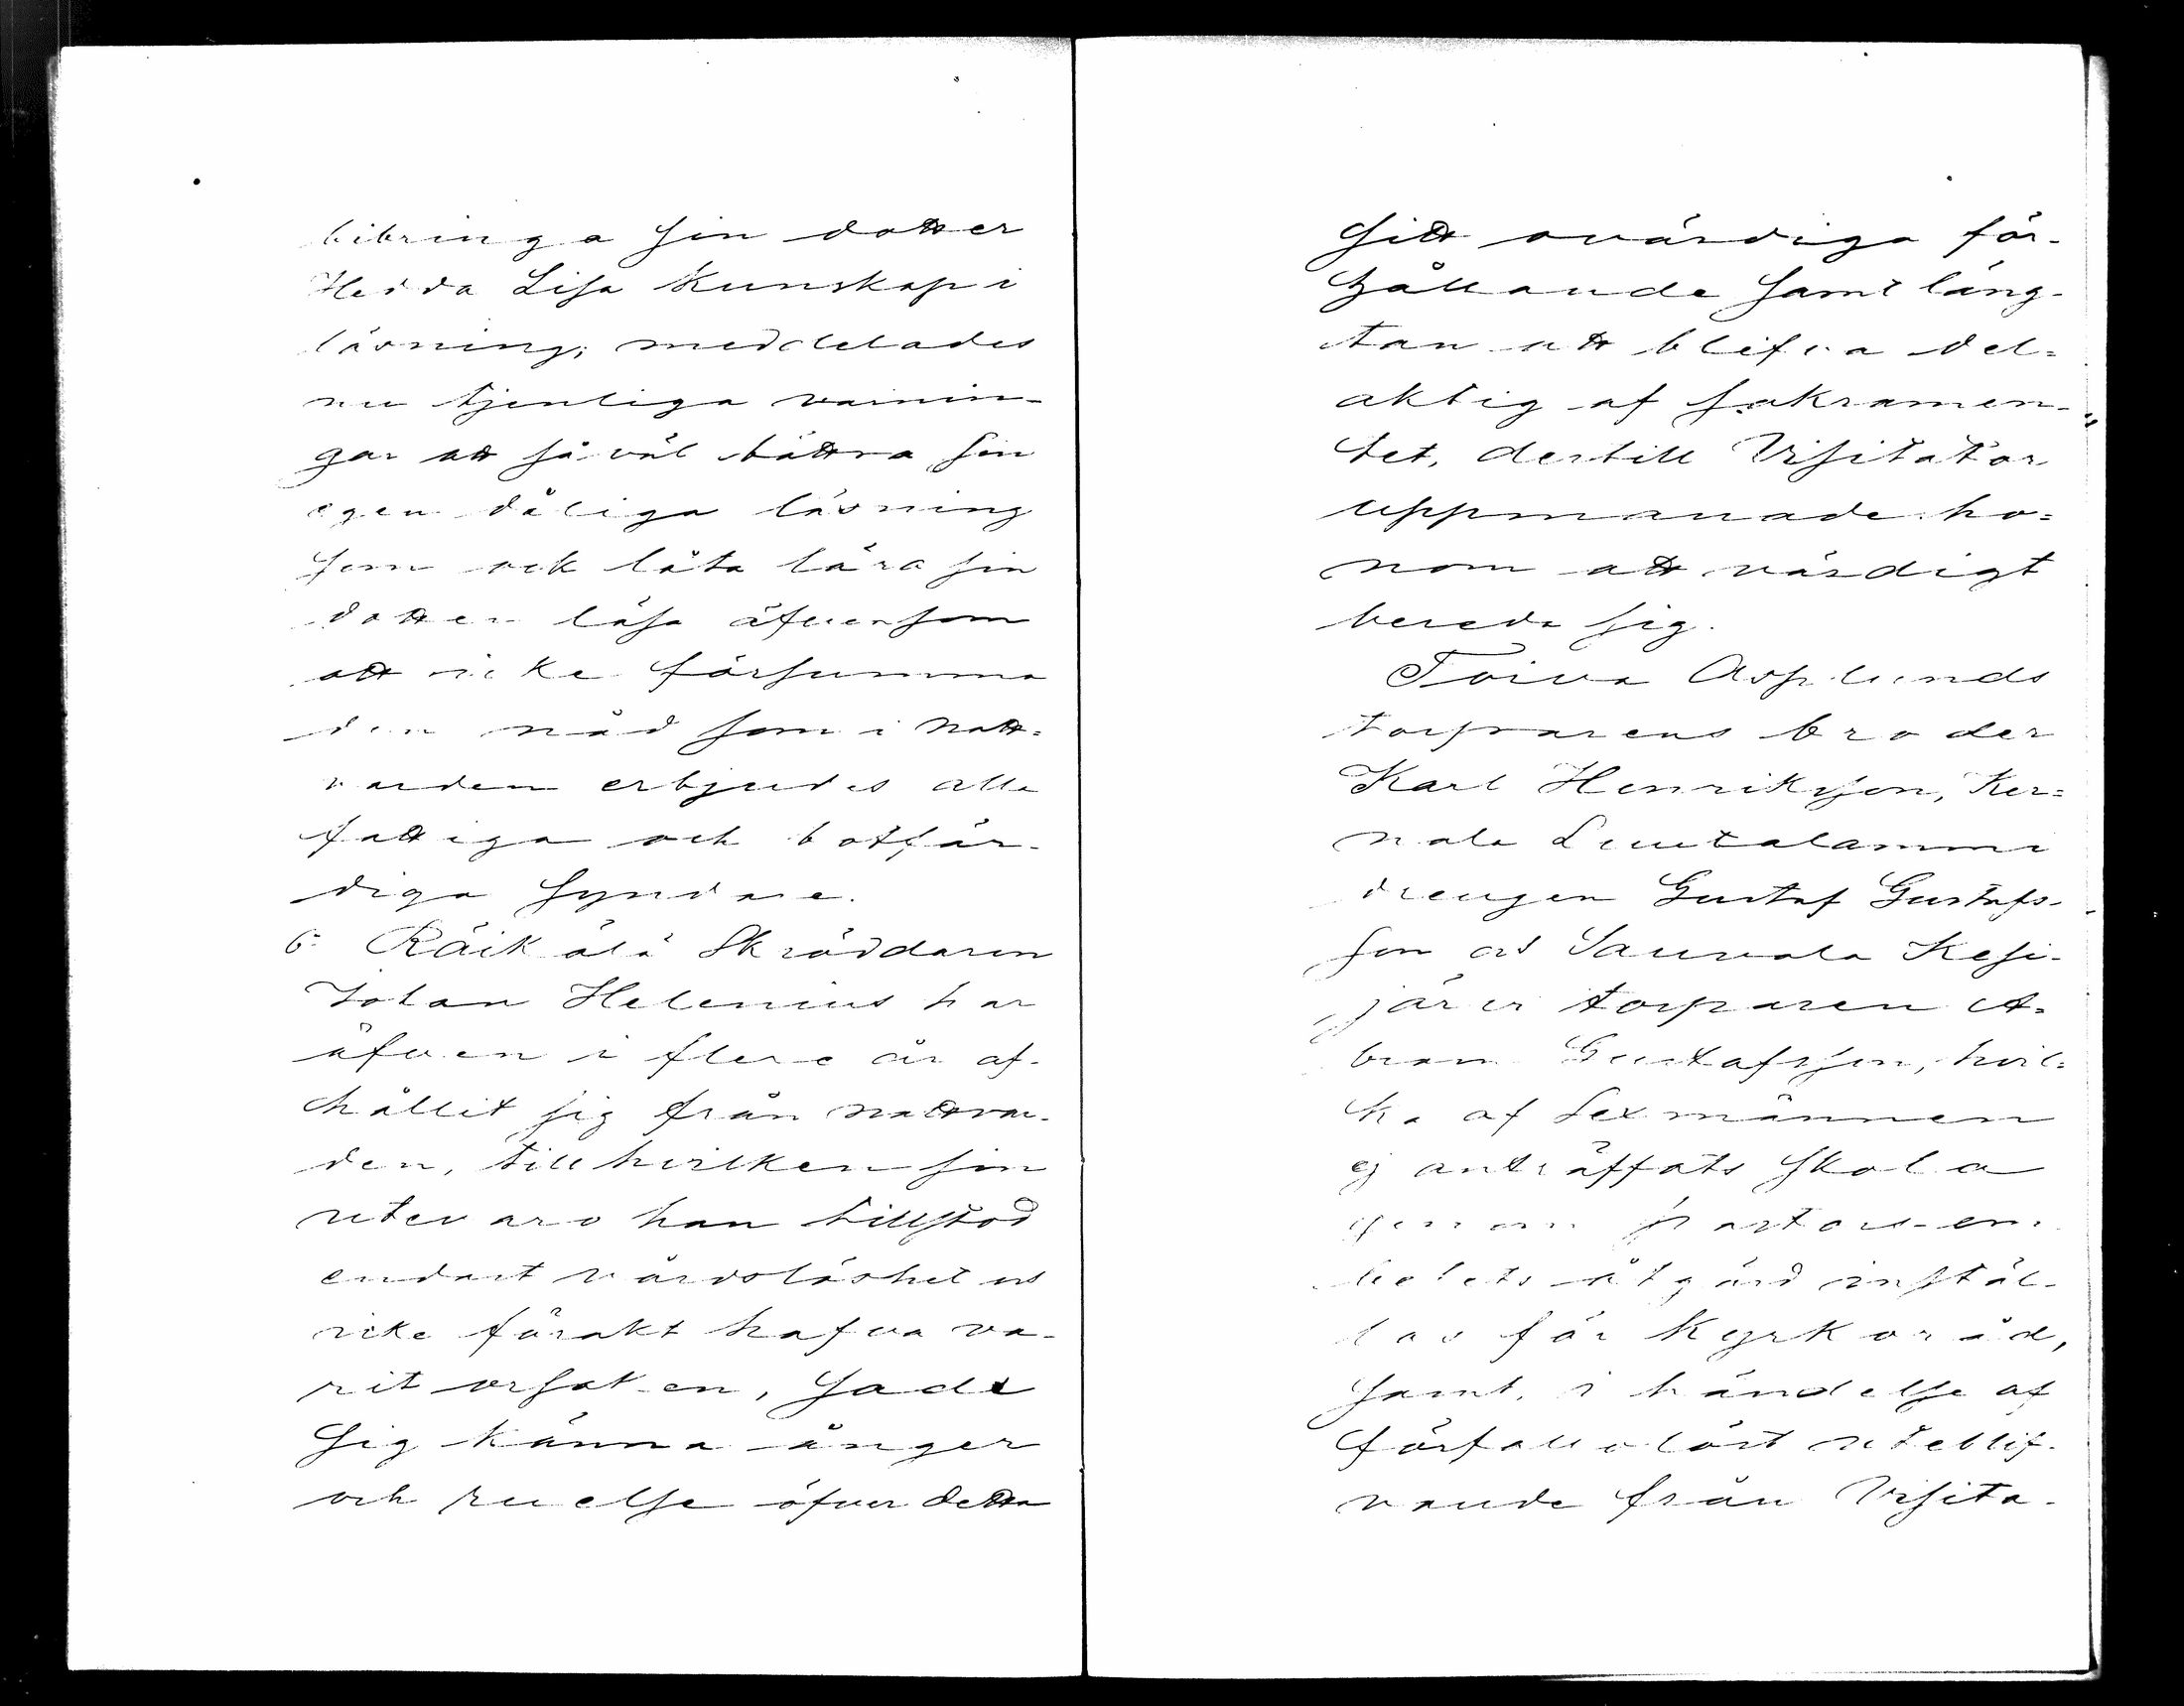 bibringa sin dotter
Hedda Lisa kunskap i
läsning, meddelades
nu tjenliga varnin-
gar att så väl bättra sin
egen dåliga läsning
som ock låta lära sin
dotter läsa äfvensom
att icke försumma
den nåd som i natt-
varden erbjudes alla
fattiga och botfär-
diga syndare.
6. Räikälä Skräddaren
Johan Helenius har
äfven i flere år af-
hållit sig från nattvar-
den, till hvilken sin
utevaro han tillstod
endast vårdslöshet os
icke förakt hafva va-
rit orsaken, sade
sig känna ånger
och ruelse öfver detta
sitt ovärdiga för-
hållande samt läng-
tan att blifva del-
aktig af sakramen-
tet, dertill Visitator
uppmanade ho-
nom att värdigt
bereda sig.
Toiva Asplunds
torparens broder
Karl Henriksson, Ker-
nala Luutalammi
drengen Gustaf Gustafs-
son os Sauvala Kesi-
järvi torparen A-
bram Gustafsson, hvil-
ka af Sexmännen
ej anträffats skola
genom pastors-em-
betets åtgärd instäl-
las för Kyrkoråd,
samt, i händelse af
förfallolöst uteblif-
vande från Visita-